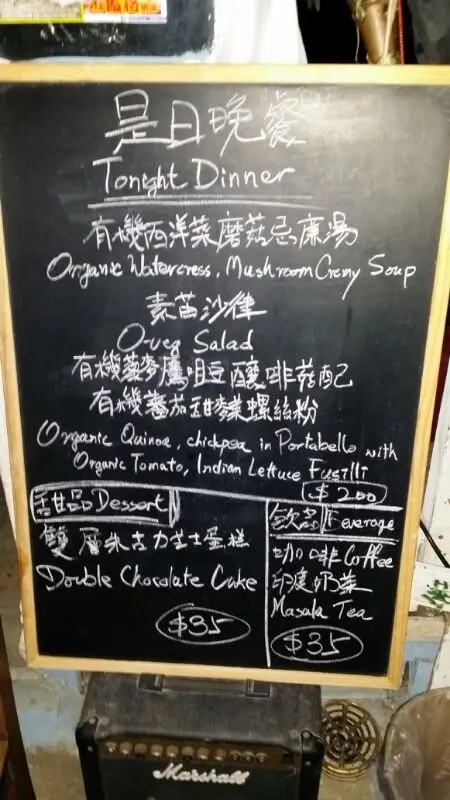 是日晚餐
Tonight Dinner
有機西洋菜磨菇忌廉湯
Organic Watercress, Mushroom Cremy Soup
素苗沙律
O-veg Salad
有機藜麥鷹咀豆釀啡菇配
有機蕃茄甜麥菜螺絲粉
Organic Quinoa, chickpea in Portabello with
Organic Tomato, Indian Lettuce Fusilli
$200
甜品 Dessert
雙層朱古力芝士蛋糕
Double Chocolate Cake
$35
飲品 Beverage
咖啡 Coffee
印度奶茶
Masala Tea
$35
Marshall